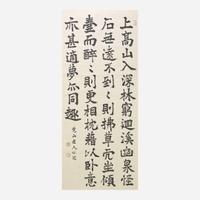 上高山入深林窮迴溪幽泉怪
石無遠不到々則披草而坐傾
壺而醉々則更相枕藉以臥意
亦甚適夢亦同趣